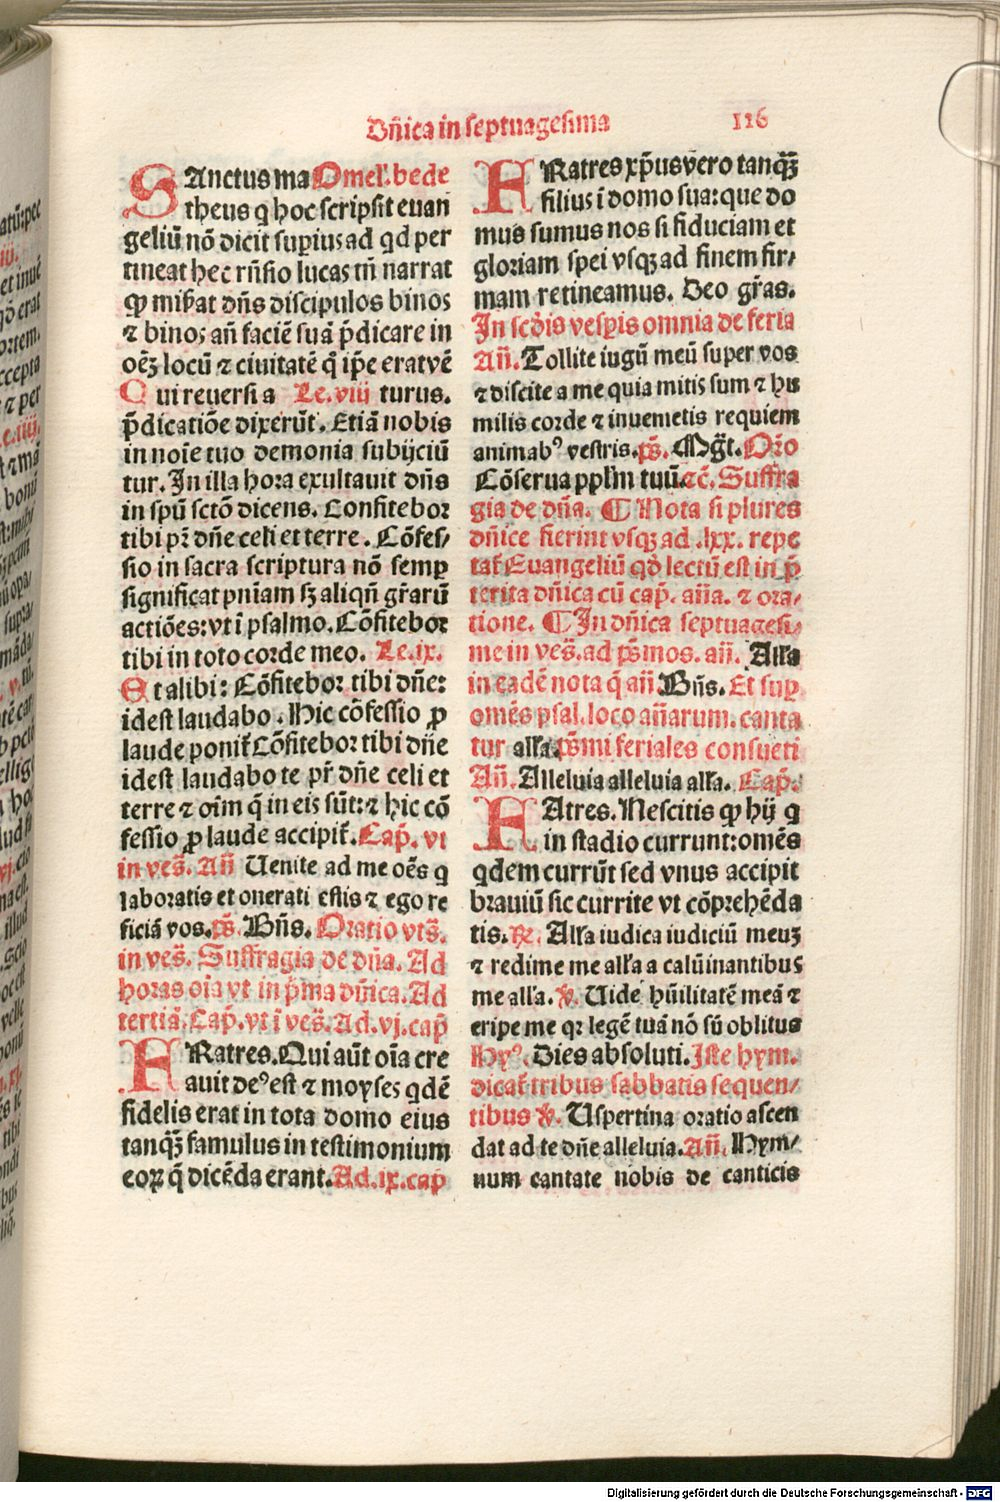 Dñica in septuagesima 116
SAnctus ma Omel'. bede
theus q hoc scripsit euan
geliū nō dicit supius ad qd per
tineat hec rñsio lucas tñ narrat
qp mit̄bat dñs discipulos binos
⁊ binos añ faciē suā p̄dicare in
oēꝫ locū ⁊ ciuitatē q̄ ip̄e erat vē
Qui reuersi a Le. viii turus.
p̄dicatiōe dixerūt. Etiā nobis
in noīe tuo demonia subijciū
tur. In illa hora exultauit dñs
in spū sctō dicens. Confitebor
tibi pr̄ dñe celi et terre. Cōfes/
sio in sacra scriptura nō semp
significat pniam sꝫ aliqñ gr̄arū
actiões: vt ī psalmo. Cōfitebor
tibi in toto corde meo. Le. ix.
Et alibi: Cōfitebor tibi dñe:
idest laudabo. Hic cōfessio ꝓ
laude ponit̄ Cōfitebor tibi dñe
idest laudabo te pr̄ dñe celi et
terre ⁊ oīm q̄ in eis sūt: ⁊ hic cō
fessio ꝓ laude accipit̄. Cap̄. vt
in ves̄. Añ Uenite ad me oēs q
laboratis et onerati estis ⁊ ego re
ficiā vos. p̄s. Bñs. Oratio vts̄.
in ves̄. Suffragia de dña. Ad
horas oīa vt in p̄ma dñica. Ad
tertiā. Cap̄. vt ī ves̄. Ad. vj. cap̄
FRatres. Qui aūt oīa cre
auit deꝰ est ⁊ moyses qdē
fidelis erat in tota domo eius
tanqꝫ famulus in testimonium
eoꝝ q̄ dicēda erant. Ad. ix. cap̄
FRatres xp̄us vero tanqꝫ
filius ī domo sua: que do
mus sumus nos si fiduciam et
gloriam spei vsqꝫ ad finem fir/
mam retineamus. Deo gr̄as.
In scd̄is vesp̄is omnia de feria
Añ. Tollite iugū meū super vos
⁊ discite a me quia mitis sum ⁊ hu
milis corde ⁊ inuenietis requiem
animabꝰ vestris. p̄s. Mgt̄. Or̄o
Cōserua pplm tuū. ⁊c̄. Suffra
gia de dña. ¶ Nota si plures
dñice fierint vsqꝫ ad .lxx. repe
tat̄ Euangeliū qd̄ lectū est in p̄
terita dñica cū cap̄. aña. ⁊ ora/
tione. ¶ In dñica septuagesi/
me in ves̄. ad p̄smos. añ. Alla
in eadē nota q̄ añ Bñs. Et sup
omēs psal. loco añarum. canta
tur alla. p̄smi feriales consueti
Añ. Alleluia alleluia alla. Cap̄.
FRatres. Nescitis qp hij q
in stadio currunt: omēs
qdem currūt sed vnus accipit
brauiū sic currite vt cōprehēda
tis. ℟. Alla iudica iudiciū meuꝫ
⁊ redime me alla a calūniantibus
me alla. ℣. Uide hūilitatē meā ⁊
eripe me qr legē tuā nō sū oblitus
Hyꝰ. Dies absoluti. Iste hym.
dicat̄ tribus sabbatis sequen/
tibus ℣. Uspertina oratio ascen
dat ad te dñe alleluia. Añ. Hym/
num cantate nobis de canticis
Digitalisierung gefördert durch die Deutsche Forschungsgemeinschaft - DFG